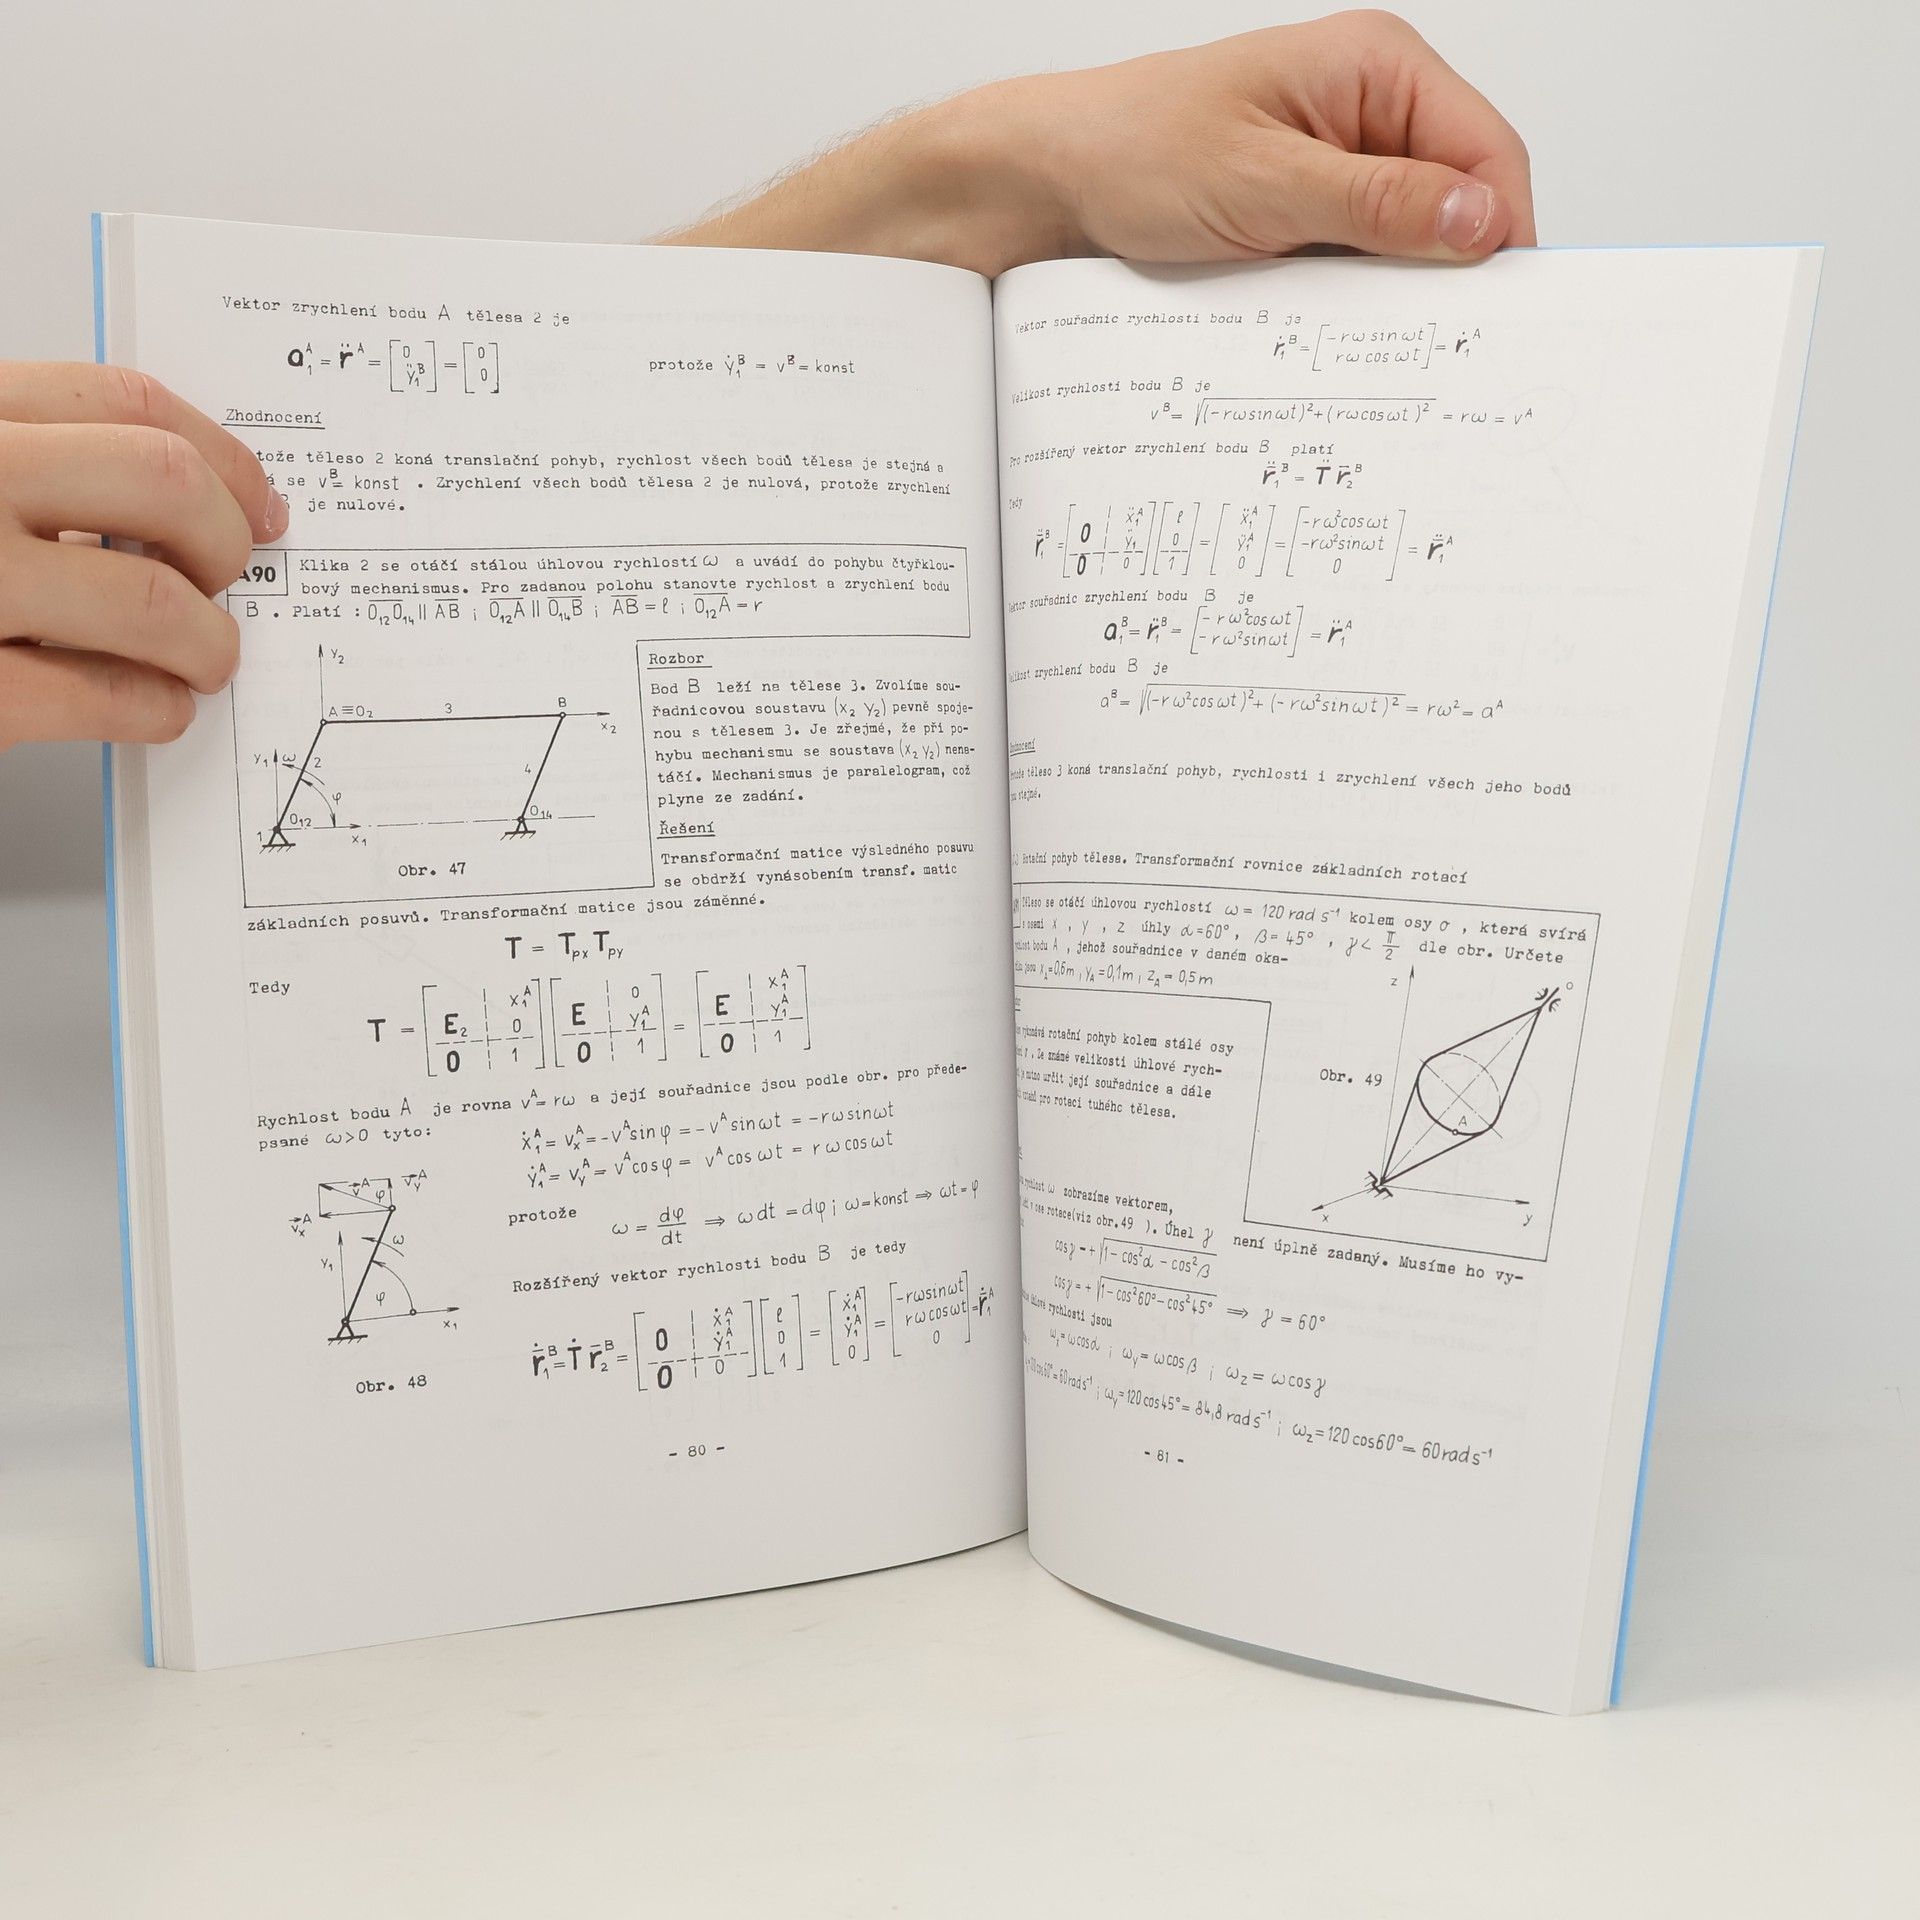 Vektor zrychlení bodu A tělesa 2 je
a₁ᴬ = r̈ᴬ = [0 ÿ₁ᴮ] = [0 0] protože ẏ₁ᴮ = vᴮ = konst
Zhodnocení
tože těleso 2 koná translační pohyb, rychlost všech bodů tělesa je stejná a
á se vᴮ = konst . Zrychlení všech bodů tělesa 2 je nulová, protože zrychlení
B je nulové.
A90 Klika 2 se otáčí stálou úhlovou rychlostí ω a uvádí do pohybu čtyřklou-
bový mechanismus. Pro zadanou polohu stanovte rychlost a zrychlení bodu
B . Platí : O₁₂O₁₄ ∥ AB ; O₁₂A ∥ O₁₄B ; AB = ℓ ; O₁₂A = r
y₂
A ≡ O₂ 3 B
x₂
y₁ ω 2 4
φ
1 O₁₂ x₁ O₁₄
Obr. 47
Rozbor
Bod B leží na tělese 3. Zvolíme sou-
řadnicovou soustavu (x₂ y₂) pevně spoje-
nou s tělesem 3. Je zřejmé, že při po-
hybu mechanismu se soustava (x₂ y₂) nena-
táčí. Mechanismus je paralelogram, což
plyne ze zadání.
Řešení
Transformační matice výsledného posuvu
se obdrží vynásobením transf. matic
základních posuvů. Transformační matice jsou záměnné.
T = Tₚₓ Tₚᵧ
Tedy
T = [E₂ | x₁ᴬ 0 ; 0 | 1] [E | 0 y₁ᴬ ; 0 | 1] = [E | x₁ᴬ y₁ᴬ ; 0 | 1]
Rychlost bodu A je rovna vᴬ = rω a její souřadnice jsou podle obr. pro přede-
psané ω>0 tyto:
ẋ₁ᴬ = vₓᴬ = -vᴬ sin φ = -vᴬ sin ωt = -rω sin ωt
ẏ₁ᴬ = vᵧᴬ = vᴬ cos φ = vᴬ cos ωt = rω cos ωt
protože
ω = dφ/dt ⇒ ω dt = dφ ; ω = konst ⇒ ωt = φ
vᴬ vᵧᴬ
φ
vₓᴬ
ω
y₁
φ
x₁
Obr. 48
Rozšířený vektor rychlosti bodu B je tedy
r̄̇₁ᴮ = Ṫ r̄₂ᴮ = [0 | ẋ₁ᴬ ẏ₁ᴬ ; 0 | 0] [ℓ 0 1] = [ẋ₁ᴬ ẏ₁ᴬ 0] = [-rω sin ωt rω cos ωt 0] = r̄̇₁ᴬ
- 80 -
Vektor souřadnic rychlosti bodu B je
ṙ₁ᴮ = [-rω sin ωt rω cos ωt] = ṙ₁ᴬ
Velikost rychlosti bodu B je
vᴮ = √((-rω sin ωt)² + (rω cos ωt)²) = rω = vᴬ
Pro rozšířený vektor zrychlení bodu B platí
r̄̈₁ᴮ = T̈ r̄₂ᴮ
Tedy
r̄̈₁ᴮ = [0 | ẍ₁ᴬ ÿ₁ ; 0 | 0] [ℓ 0 1] = [ẍ₁ᴬ ÿ₁ᴬ 0] = [-rω² cos ωt -rω² sin ωt 0] = r̄̈₁ᴬ
ektor souřadnic zrychlení bodu B je
a₁ᴮ = r̈₁ᴮ = [-rω² cos ωt -rω² sin ωt] = r̈₁ᴬ
elikost zrychlení bodu B je
aᴮ = √((-rω² cos ωt)² + (-rω² sin ωt)²) = rω² = aᴬ
hodnocení
těleso 3 koná translační pohyb, rychlosti i zrychlení všech jeho bodů
stejné.
Rotační pohyb tělesa. Transformační rovnice základních rotací
Těleso se otáčí úhlovou rychlostí ω = 120 rad s⁻¹ kolem osy o , která svírá
s osami x , y , z úhly α = 60° , β = 45° , γ < π/2 dle obr. Určete
bodu A , jehož souřadnice v daném oka-
jsou x_A = 0,6m ; y_A = 0,1m ; z_A = 0,5m
vykonává rotační pohyb kolem stálé osy
. Ze známé velikosti úhlové rych-
je nutno určit její souřadnice a dále
pro rotaci tuhého tělesa.
z o
Obr. 49
A
x y
rychlost ω zobrazíme vektorem,
v ose rotace(viz obr.49 ). Úhel γ není úplně zadaný. Musíme ho vy-
cos γ = +√(1 - cos²α - cos²β)
cos γ = +√(1 - cos²60° - cos²45°) ⇒ γ = 60°
úhlové rychlosti jsou
ωₓ = ω cos α ; ωᵧ = ω cos β ; ω_z = ω cos γ
120 cos 60° = 60 rad s⁻¹ ; ωᵧ = 120 cos 45° = 84,8 rad s⁻¹ ; ω_z = 120 cos 60° = 60 rad s⁻¹
- 81 -